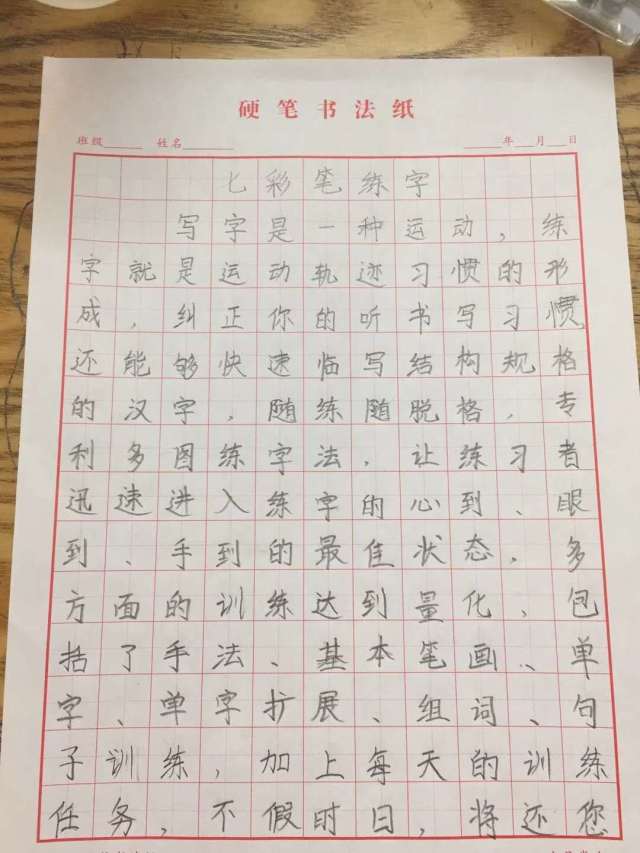 硬笔书法纸
班级 姓名 年 月 日
七彩笔练字
写字是一种运动，练
字就是运动轨迹习惯的形
成，纠正你的听书写习惯
还能够快速临写结构规格
的汉字，随练随脱格，专
利多图练字法，让练习者
迅速进入练字的心到、眼
到、手到的最佳状态，多
方面的训练达到量化、包
括了手法、基本笔画、单
字、单字扩展、组词、句
子训练，加上每天的训练
任务，不假时日，将还您